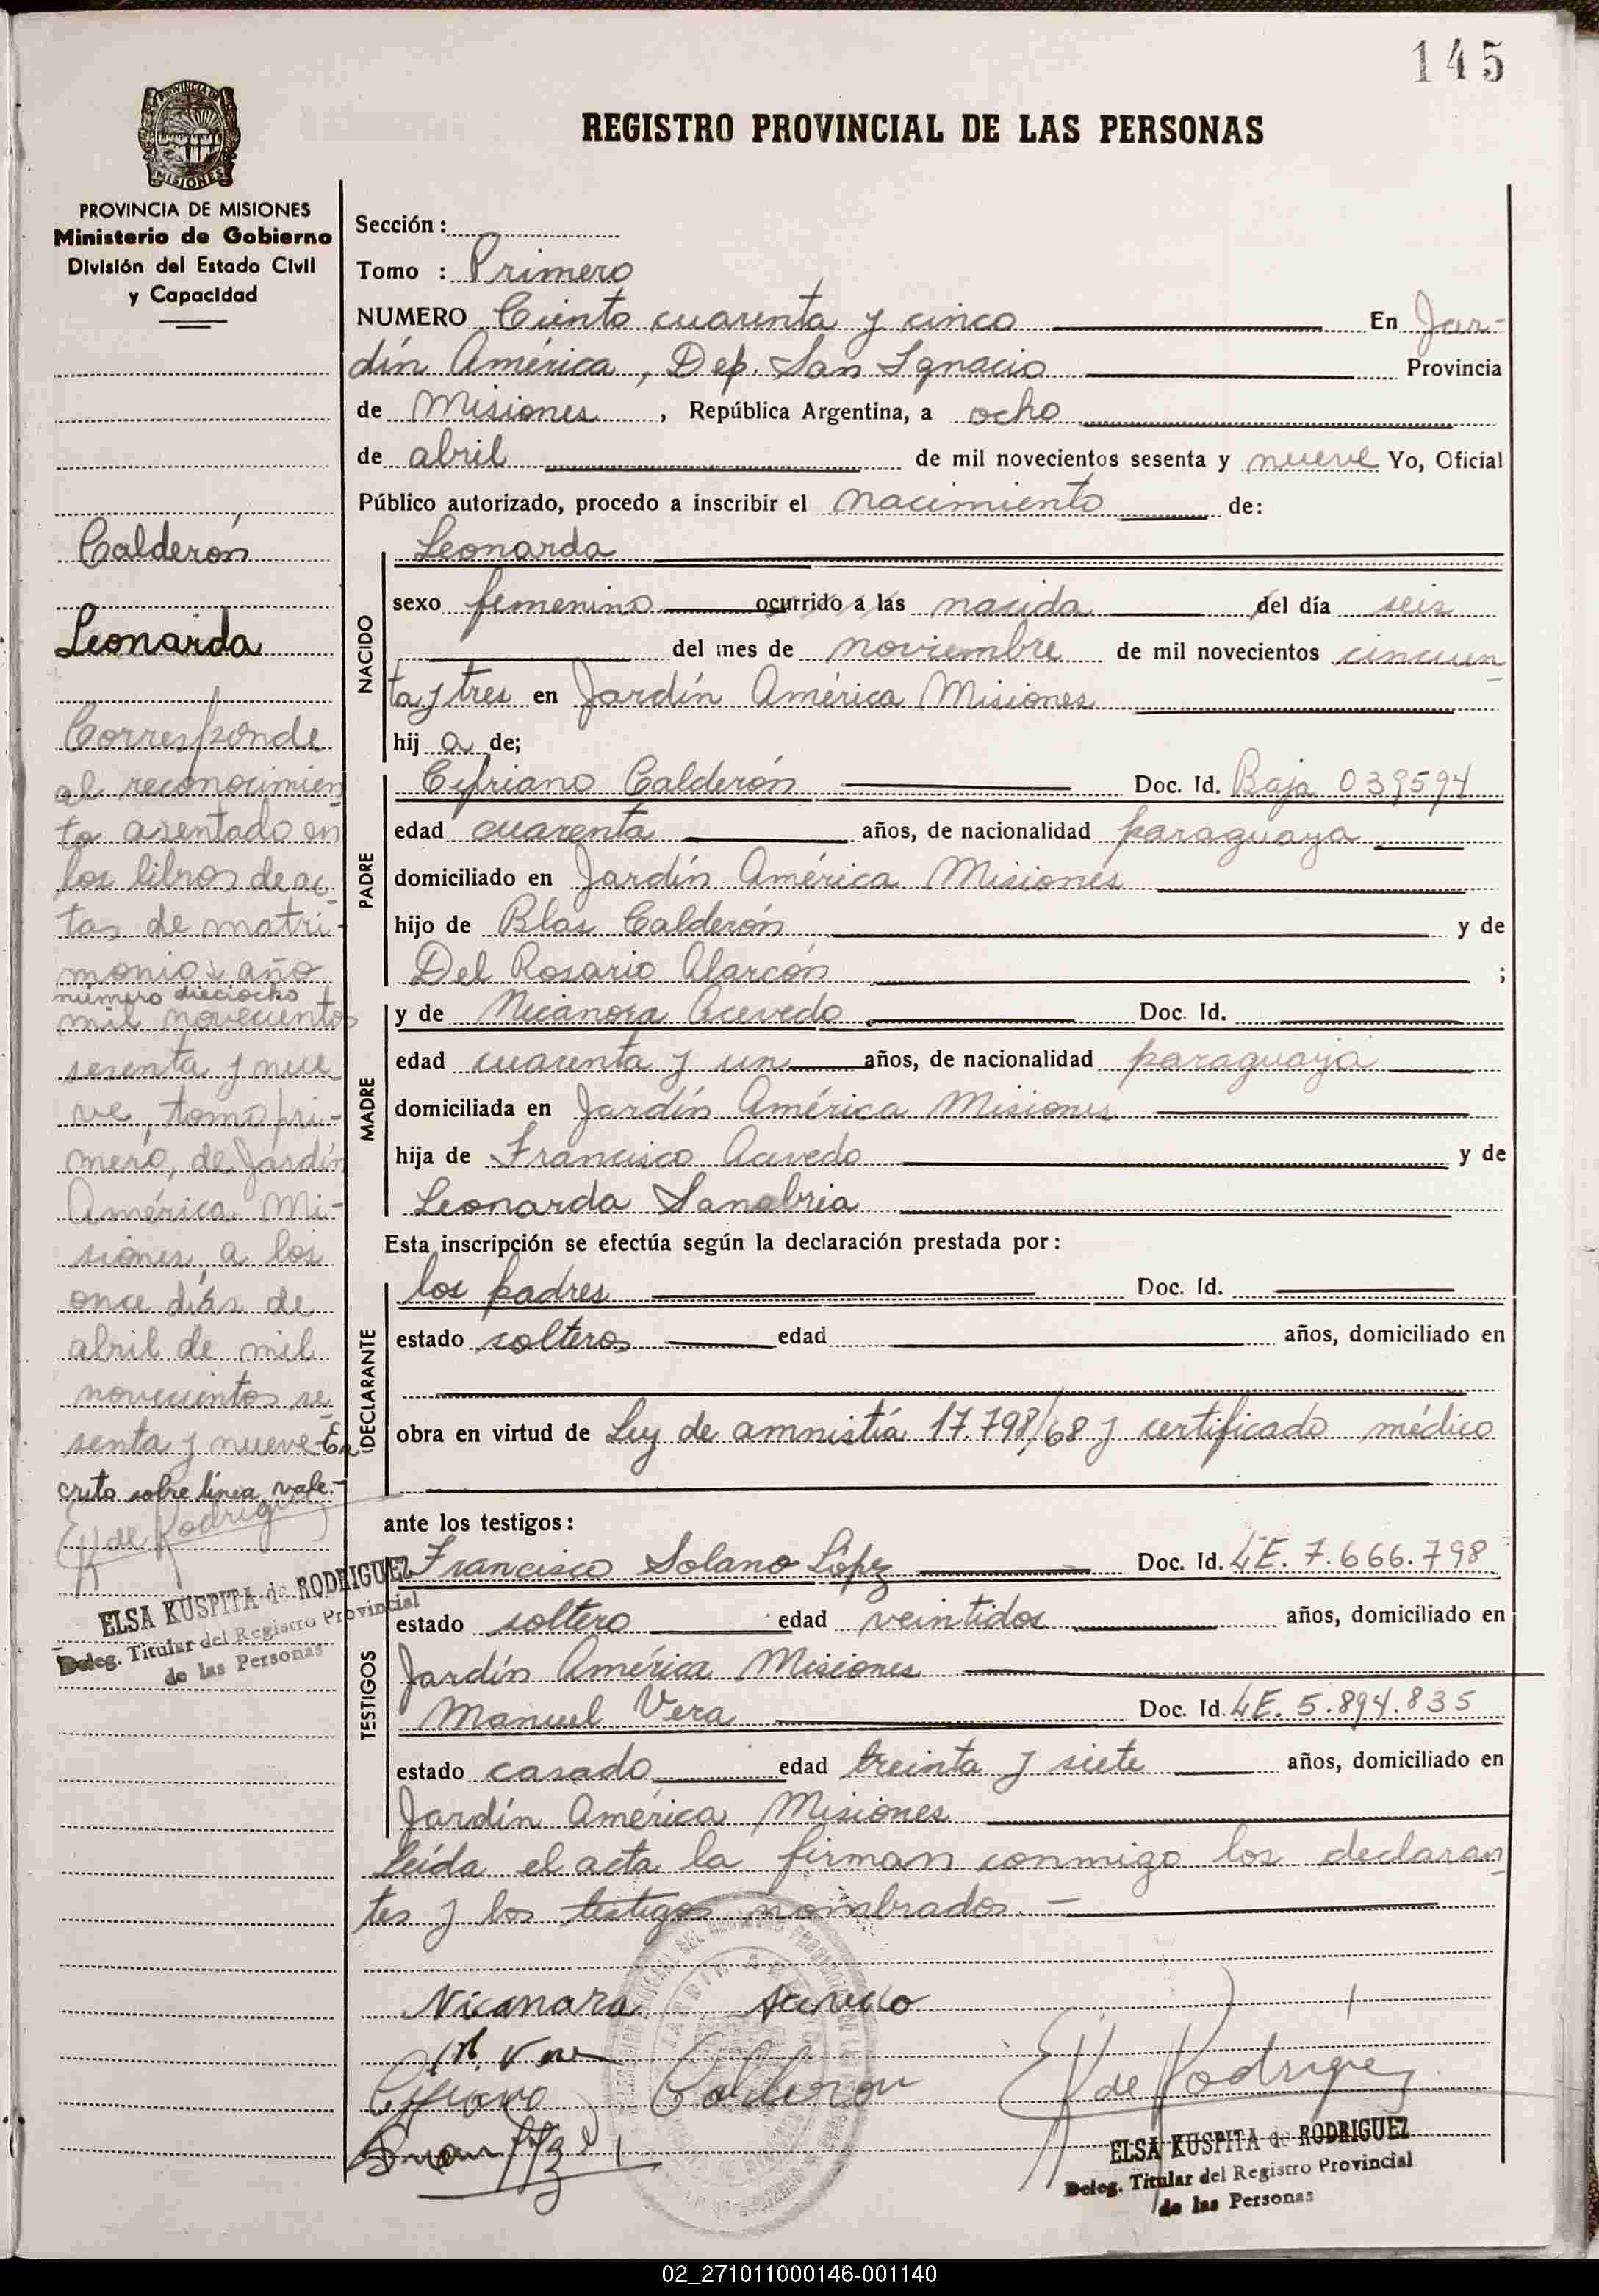 145
REGISTRO PROVINCIAL DE LAS PERSONAS
PROVINCIA DE MISIONES
Ministerio de Gobierno
División del Estado Civil
y Capacidad
Calderón
Leonarda
Corresponde
al reconocimien
to asentado en
los libros de ac-
tas de matri-
monios año
número dieciocho
mil novecientos
sesenta y nue-
ve, tomo pri-
mero, de Jardín
América Mi-
siones, a los
once días de
abril de mil
novecientos se-
senta y nueve-Es
crito sobre línea vale.-
E K de Rodriguez
ELSA KUSPITA de RODRIGUEZ
Deleg. Titular del Registro Provincial
de las Personas
Sección :
Tomo : Primero
NUMERO Ciento cuarenta y cinco En Jar-
dín América, Dep. San Ignacio Provincia
de Misiones , República Argentina, a ocho
de abril de mil novecientos sesenta y nueve Yo, Oficial
Público autorizado, procedo a inscribir el nacimiento de:
NACIDO
Leonarda
sexo femenino ocurrido a las nacida del día seis
del mes de noviembre de mil novecientos cincuen-
ta y tres en Jardín América Misiones
hij a de;
PADRE
Cipriano Calderón Doc. Id. Baja 039594
edad cuarenta años, de nacionalidad paraguaya
domiciliado en Jardín América Misiones
hijo de Blas Calderón y de
Del Rosario Alarcón ;
MADRE
y de Nicanora Acevedo Doc. Id.
edad cuarenta y un años, de nacionalidad paraguaya
domiciliada en Jardín América Misiones
hija de Francisco Acevedo y de
Leonarda Sanabria
Esta inscripción se efectúa según la declaración prestada por:
DECLARANTE
los padres Doc. Id.
estado solteros edad años, domiciliado en
obra en virtud de Ley de amnistía 17.798/68 y certificado médico
ante los testigos:
TESTIGOS
Francisco Solano López Doc. Id. LE. 7.666.798
estado soltero edad veintidos años, domiciliado en
Jardín América Misiones
Manuel Vera Doc. Id. LE. 5.894.835
estado casado edad treinta y siete años, domiciliado en
Jardín América Misiones
Leída el acta la firman conmigo los declaran-
tes y los testigos nombrados.-
Nicanara Acevedo
M. Vera
Cipriano Calderon
E K de Rodriguez
ELSA KUSPITA de RODRIGUEZ
Deleg. Titular del Registro Provincial
de las Personas
02_271011000146-001140